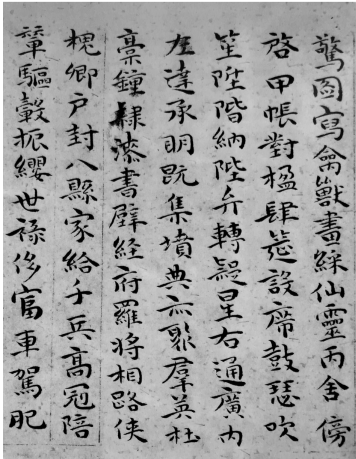 驚圖寫禽獸畫綵仙靈丙舍傍
啓甲帳對楹肆筵設席鼓瑟吹
笙陞階納陛弁轉疑星右通廣内
左達承明既集墳典亦聚羣英杜
稾鍾隸漆書壁経府羅將相路俠
槐卿户封八縣家給千兵高冠陪
輦驅轂振纓世禄侈富車駕肥